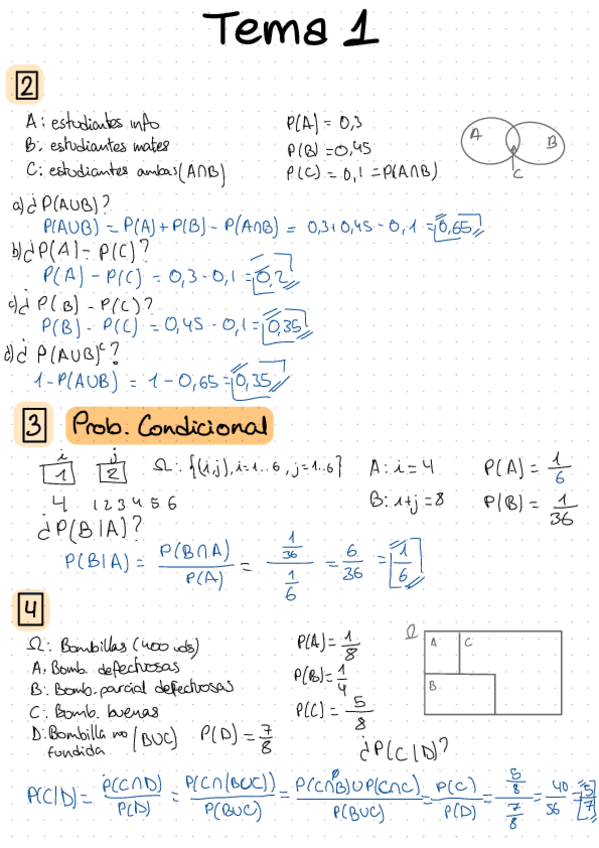 Tema 1
2
A: estudiantes info P(A) = 0,3
B: estudiantes mates P(B) = 0,45
C: estudiantes ambas (A∩B) P(C) = 0,1 = P(A∩B)
A B C
a) ¿P(A∪B)?
P(A∪B) = P(A) + P(B) - P(A∩B) = 0,3 + 0,45 - 0,1 = 0,65
b) ¿P(A) - P(C)?
P(A) - P(C) = 0,3 - 0,1 = 0,2
c) ¿P(B) - P(C)?
P(B) - P(C) = 0,45 - 0,1 = 0,35
d) ¿P(A∪B)ᶜ?
1 - P(A∪B) = 1 - 0,65 = 0,35
3 Prob. Condicional
i j
1 2 Ω: {(i,j), i=1..6, j=1..6} A: i=4 P(A) = 1/6
4 1 2 3 4 5 6 B: i+j=8 P(B) = 1/36
¿P(B|A)?
P(B|A) = P(B∩A)/P(A) = (1/36)/(1/6) = 6/36 = 1/6
4
Ω: Bombillas (400 uds) P(A) = 1/8
A: Bomb. defectuosas
B: Bomb. parcial defectuosas P(B) = 1/4
C: Bomb. buenas P(C) = 5/8
D: Bombilla no fundida (B∪C) P(D) = 7/8
¿P(C|D)?
Ω A C
B
P(C|D) = P(C∩D)/P(D) = P(C∩(B∪C))/P(B∪C) = P(C∩B)∪P(C∩C)/P(B∪C) = P(C)/P(D) = (5/8)/(7/8) = 40/56 = 5/7